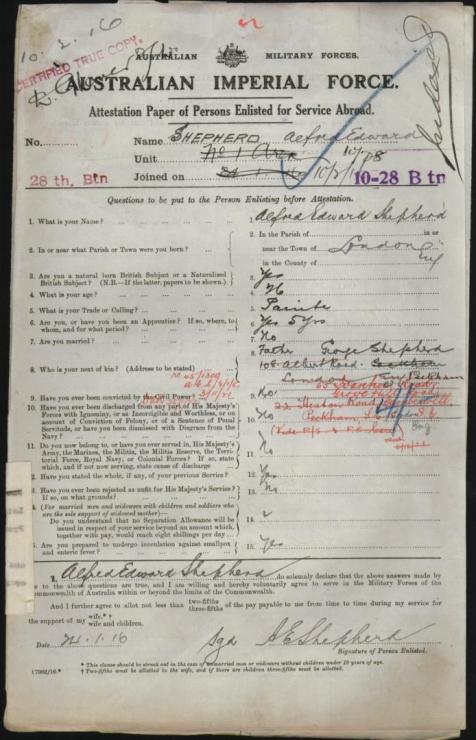 10.2.16
CERTIFIED TRUE COPY.
AUSTRALIAN MILITARY FORCES.
AUSTRALIAN IMPERIAL FORCE.
Attestation Paper of Persons Enlisted for Service Abroad.
No. Name SHEPHERD Alfred Edward
Unit No 1 10/28
28 th. Btn Joined on 10-28 Btn
Questions to be put to the Person Enlisting before Attestation.
1. What is your Name? 1. Alfred Edward Shepherd
2. In or near what Parish or Town were you born? 2. In the Parish of in or
near the Town of London
in the County of Eng
3. Are you a natural born British Subject or a Naturalised
British Subject? (N.B.—If the latter, papers to be shown.) 3. Yes
4. What is your age? 4.
5. What is your Trade or Calling? 5. Painter
6. Are you, or have you been an Apprentice? If so, where, to
whom, and for what period? 6. Yes 5 yrs
7. Are you married? 7. No
8. Who is your next of kin? (Address to be stated) 8. Father George Shepherd
108 Albert Road. Peckham
London
9. Have you ever been convicted by the Civil Power? 9. No
Grove Hill Road
22 Heaton Road
10. Have you ever been discharged from any part of His Majesty's
Forces with Ignominy, or as Incorrigible and Worthless, or on
account of Conviction of Felony, or of a Sentence of Penal
Servitude, or have you been dismissed with Disgrace from the
Navy? 10. No
Peckham London S.E.
Eng
11. Do you now belong to, or have you ever served in, His Majesty's
Army, the Marines, the Militia, the Militia Reserve, the Terri-
torial Force, Royal Navy, or Colonial Forces? If so, state
which, and if not now serving, state cause of discharge 11. No
12. Have you stated the whole, if any, of your previous Service? 12. Yes
13. Have you ever been rejected as unfit for His Majesty's Service?
If so, on what grounds? 13. No
4. (For married men and widowers with children and soldiers who
are the sole support of widowed mother)—
Do you understand that no Separation Allowance will be
issued in respect of your service beyond an amount which,
together with pay, would reach eight shillings per day 14.
5. Are you prepared to undergo inoculation against smallpox
and enteric fever? 15. Yes
I, Alfred Edward Shepherd do solemnly declare that the above answers made by
me to the above questions are true, and I am willing and hereby voluntarily agree to serve in the Military Forces of the
Commonwealth of Australia within or beyond the limits of the Commonwealth.
And I further agree to allot not less than two-fifths three-fifths of the pay payable to me from time to time during my service for
the support of my wife.* † wife and children.
Date 24.1.16 Sgd A E Shepherd
Signature of Person Enlisted.
* This clause should be struck out in the case of unmarried men or widowers without children under 18 years of age.
† Two-fifths must be allotted to the wife, and if there are children three-fifths must be allotted.